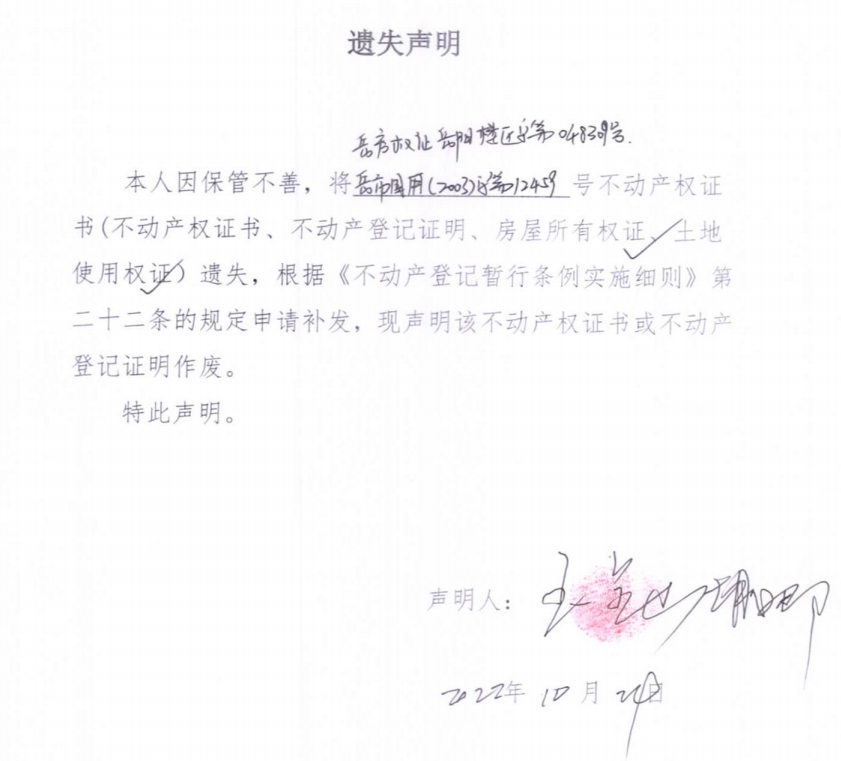 遗失声明
岳房权证岳阳楼区字第048309号.
本人因保管不善，将岳市国用(2003)字第12459号不动产权证
书(不动产权证书、不动产登记证明、房屋所有权证、土地
使用权证）遗失，根据《不动产登记暂行条例实施细则》第
二十二条的规定申请补发，现声明该不动产权证书或不动产
登记证明作废。
特此声明。
声明人：
2022年10月24日